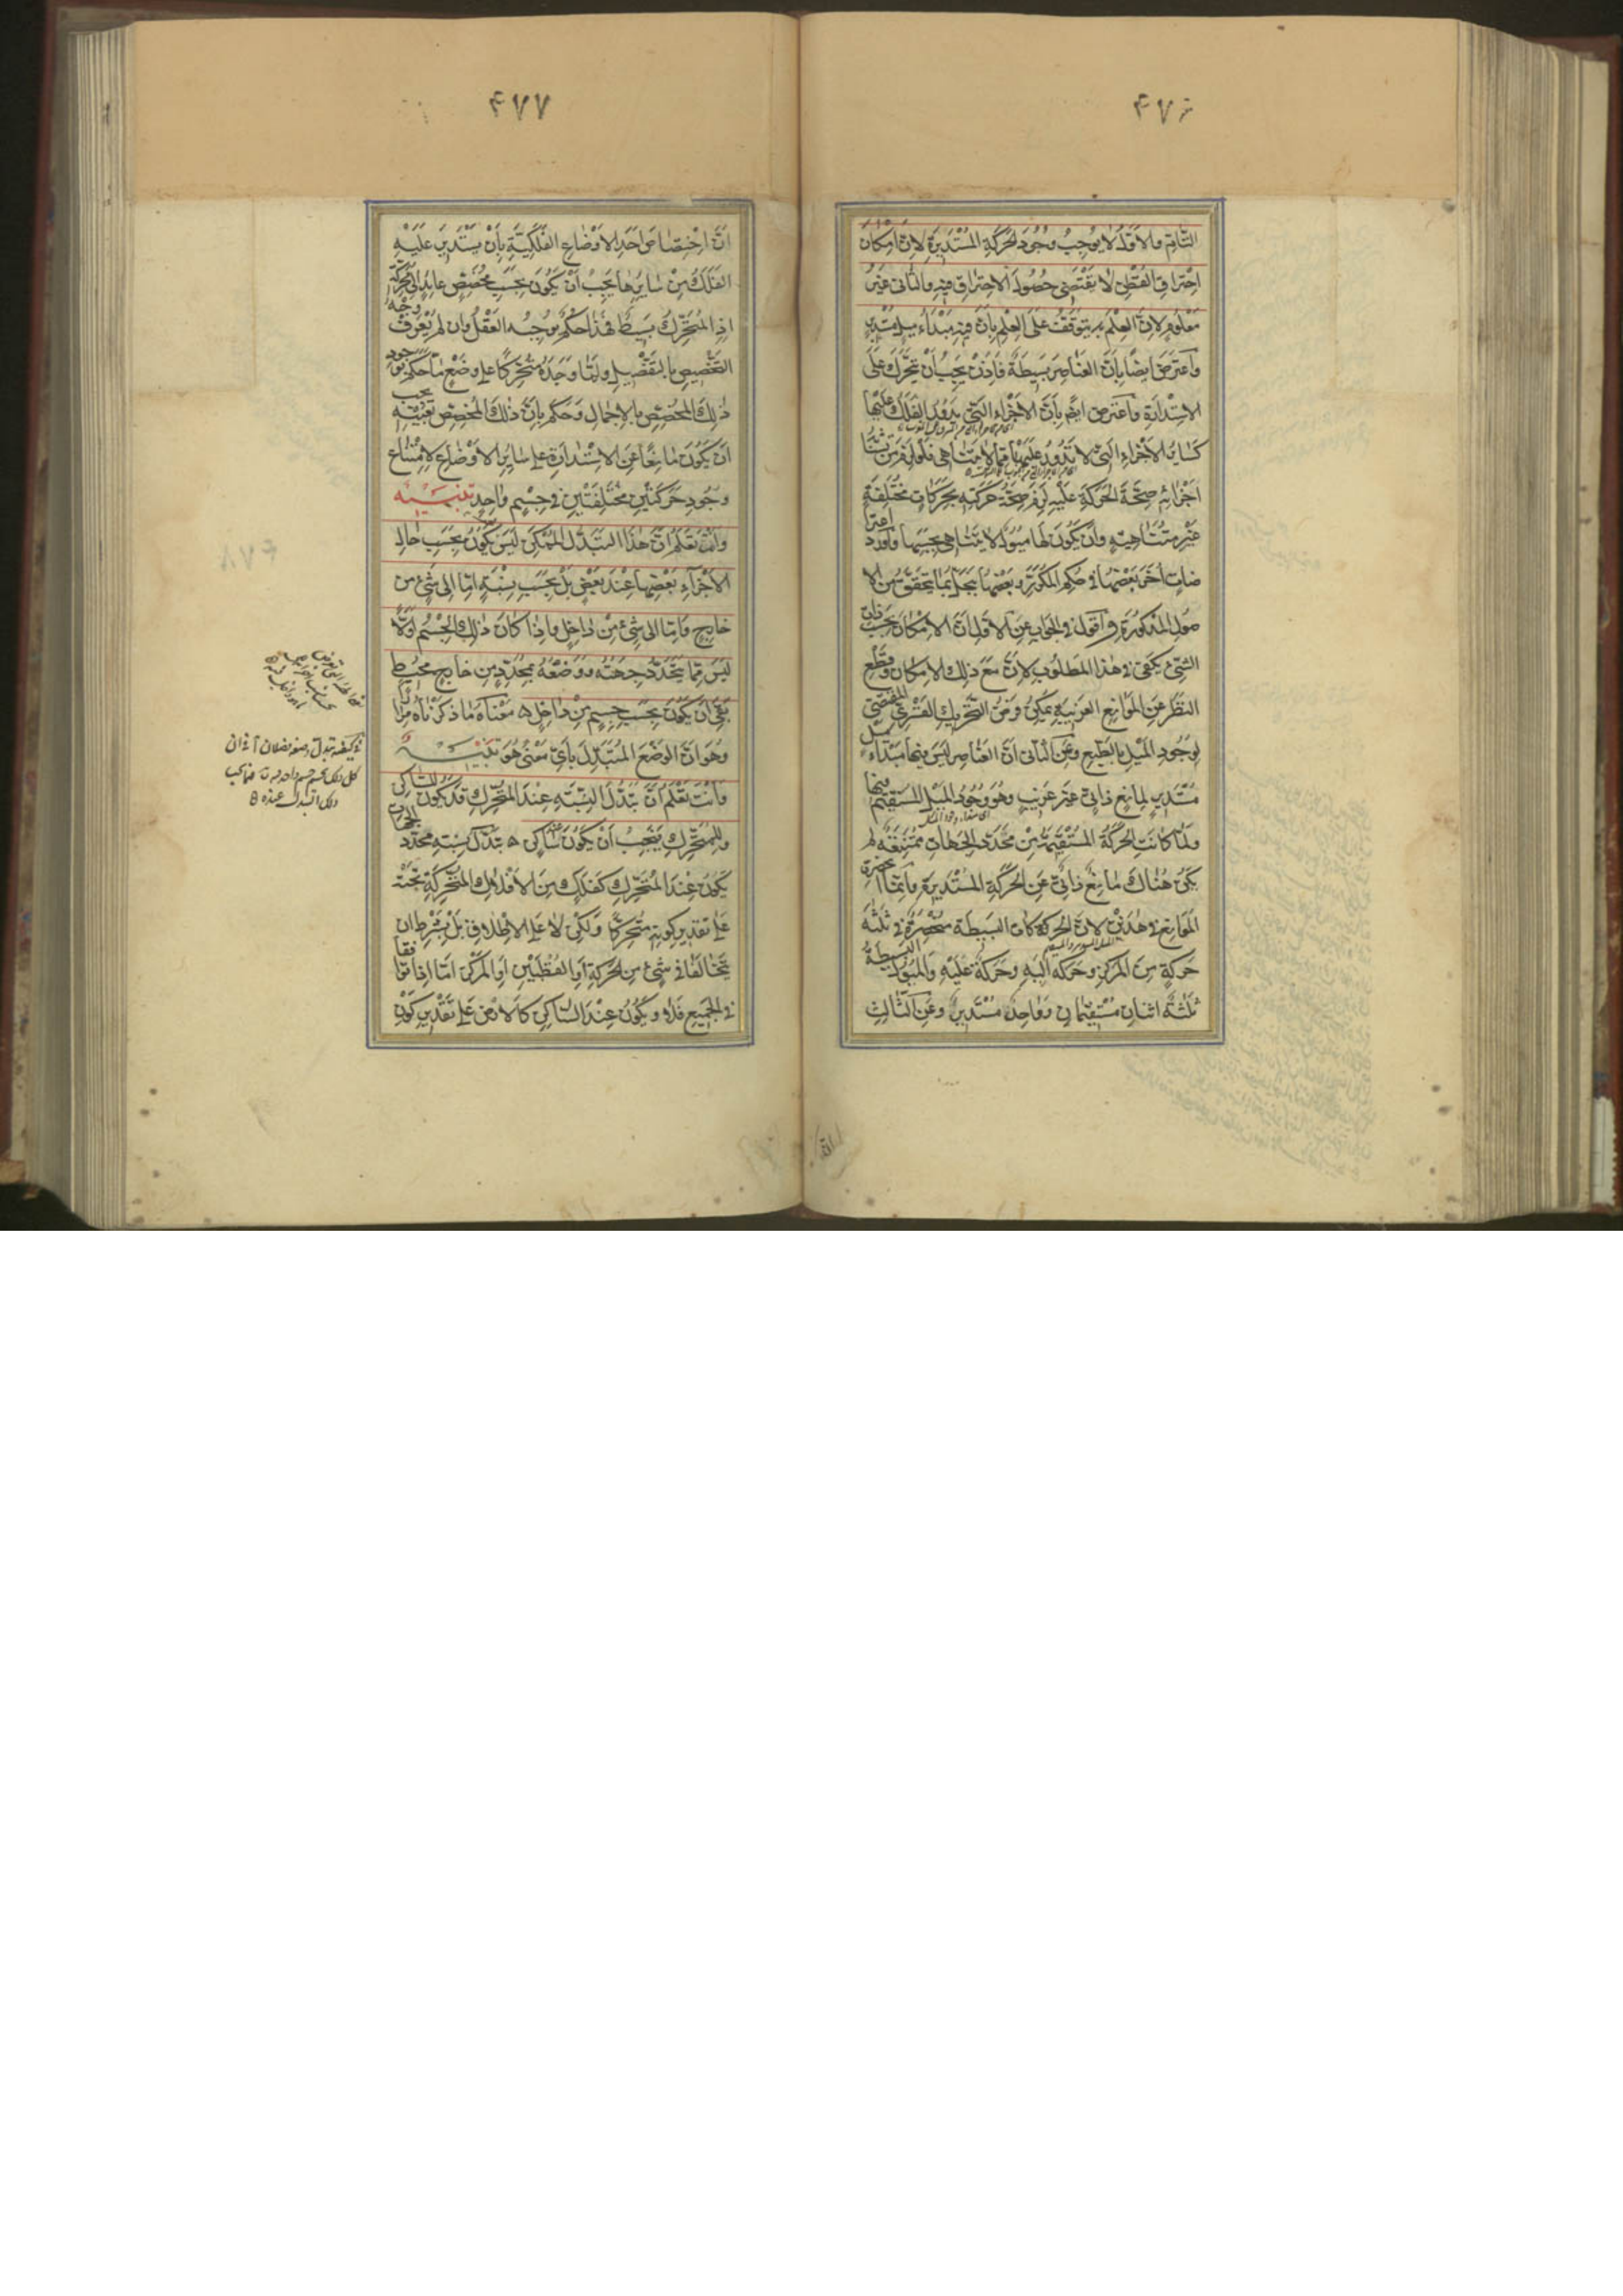 ۴۷۶
التام والاول لا يوجب وجود الحركة المستديرة لان امكان
احتراق القطن لا يقتضى حصول الاحتراق فيه والثانى غير
معلوم لان العلم به يتوقف على العلم بان فيه مبداء ميل مستدير
واعترض ايضا بان العناصر بسيطة فاذن يجب ان يتحرك على
الاستدارة واعترض ايضم بان الاجزاء التى يدور الفلك عليها
كسائر الاجزاء التى لا تدور عليها مما لا يتناهى فلو لزم من تشابه
اجزائه صحة الحركة عليه لزم صحة حركته بحركات مختلفة
غير متناهية وان يكون لها ميول لا يتناهى بحسبها واورد اعترا
ضات اخر بعضها فى حكم المكررة وبعضها ينحل بما يتحقق من الا
صول المذكورة واقول فى الجواب عن الاول ان الامكان بحسب ذات
الشئ يكفى فى هذا المطلوب لان مع ذلك الامكان وقطع
النظر عن الموانع الغريبة يمكن فرض التحريك القسرى المقتضى
لوجود الميل بالطبع وعن الثانى ان العناصر ليس فيها مبداء ميل
مستدير لمانع ذاتى غير غريب وهو وجود الميل المستقيم فيها
ولما كانت الحركة المستقيمة من محدد الجهات ممتنعة لم
يكن هناك مانع ذاتى عن الحركة المستديرة وانما انحصرت
الموانع فى هذين لان الحركات البسيطة منحصرة فى ثلثة
حركة من المركز وحركة اليه وحركة عليه والميول البسيطة
ثلثة اثنان مستقيمان وواحد مستدير وعن الثالث
۴۷۷
ان اختصاص احد الاوضاع الفلكية بان يستدير عليه
الفلك من سايرها يجب ان يكون بحسب مخصص عايد الى محركه
اذ المتحرك بسيط فهذا حكم يوجبه العقل وان لم يعرف وجه
التخصيص بالتفصيل ولما وجده متحركا على وضع ما حكم بوجود
ذلك المخصص بالاجمال وحكم بان ذلك المخصص بعينه يجب
ان يكون مانعا عن الاستدارة على ساير الاوضاع لامتناع
وجود حركتين مختلفتين فى جسم واحد تنبيه
وانت تعلم ان هذا التبدل الممكن ليس يكون بحسب حال
الاجزاء بعضها عند بعض بل بحسب نسبة اما الى شئ من
خارج واما الى شئ من داخل واذا كان ذلك الجسم اولا
ليس مما يتحدد جهته ووضعه بمحدد من خارج محيط
بقى ان يكون بحسب جسم من داخل ه معناه ما ذكرناه مرارا
وهو ان الوضع المتبدل باى معنى هو تنبيه
وانت تعلم ان تبدل النسبة عند المتحرك قد يكون للساكن
وللمتحرك فيجب ان يكون ساكن ه تبدل نسبة محدد الجهات
يكون عند المتحرك كفلك من الافلاك المتحركة تحته
على تقدير كونه متحركا ولكن لا على الاطلاق بل بشرط ان
يتخالفا فى شئ من الحركة او القطبين او المركز اما اذا توافقا
فى الجميع فلا ويكون عند الساكن كالارض على تقدير كون